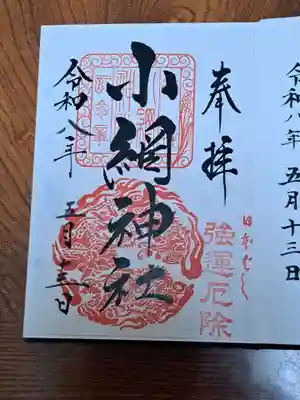 奉拝
日本ばし
強運厄除
小網神社
令和八年
五月十三日
令和八年 五月十三日